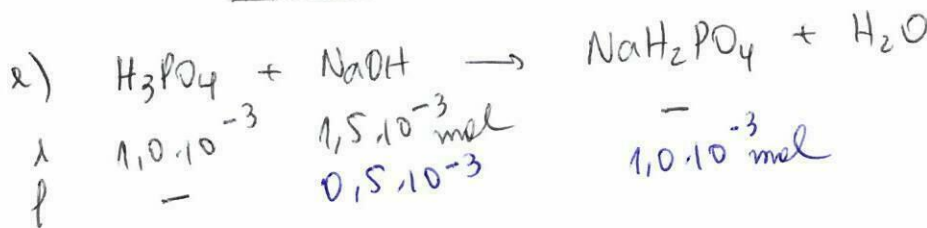 e) H₃PO₄ + NaOH → NaH₂PO₄ + H₂O
i 1,0.10⁻³ 1,5.10⁻³ mol –
f – 0,5.10⁻³ 1,0.10⁻³ mol